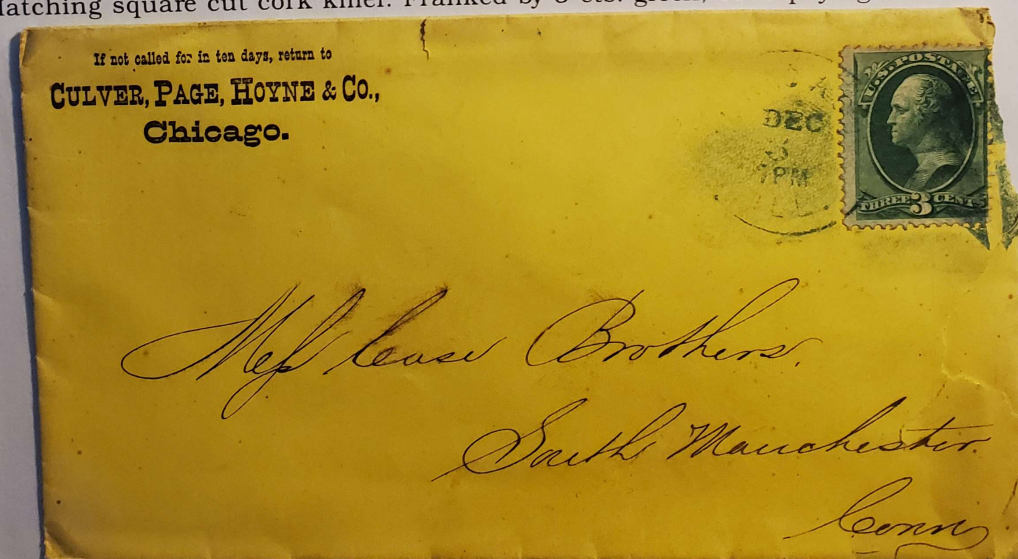 Matching square cut cork killer. Franked by 3 cts. green,
If not called for in ten days, return to
CULVER, PAGE, HOYNE & CO.,
Chicago.
DEC
7PM
ILL.
U.S. POSTAGE
THREE 3 CENTS
Mess Case Brothers.
South Manchester
Conn